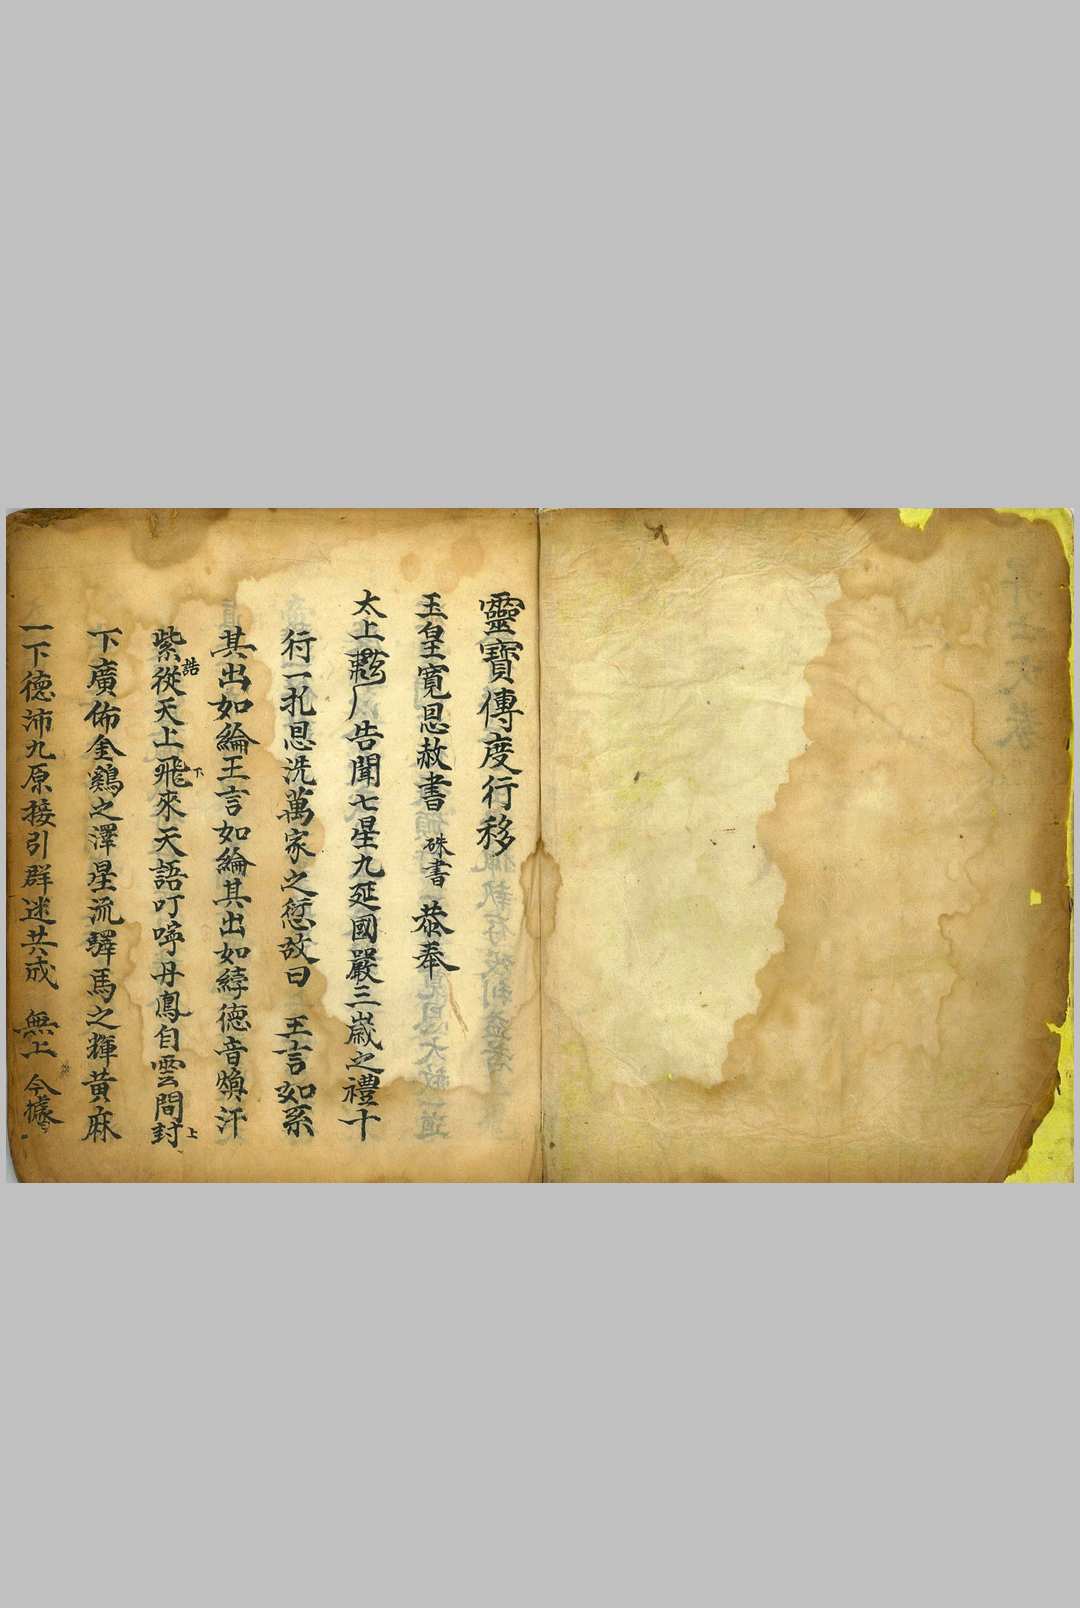 靈寶傳度行移
玉皇寬恩赦書 硃書 恭奉
太上 厂告聞七星九延國嚴三歲之禮十
行一扎恩洗萬家之愆故曰 王言如系
其出如綸王言如綸其出如綍德音煥汗
紫誥從天上飛下來天語叮嚀丹鳳自雲間封上
下廣佈金鷄之澤星流驛馬之輝黃麻
一下德沛九原接引群迷共戒 無上 今據